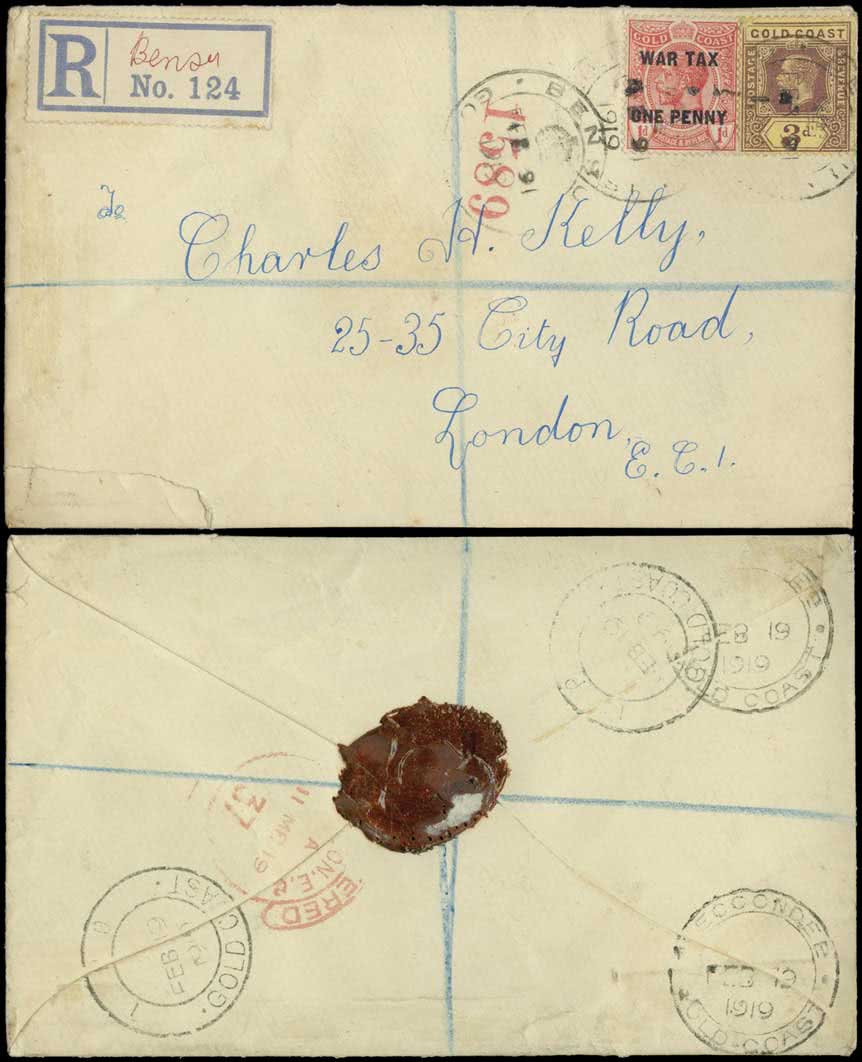 R Bensu
No. 124
GOLD COAST
WAR TAX
ONE PENNY
1d 1d
GOLD COAST
POSTAGE
3d
BENSU
1919
1589
To
Charles H. Kelly,
25-35 City Road,
London,
E.C.1.
GOLD COAST
FEB 19
1919
GOLD COAST
37
11 MR 19
A
ON.E.C
ERED
FEB 19
GOLD COAST
SECCONDEE
FEB 19
1919
GOLD COAST